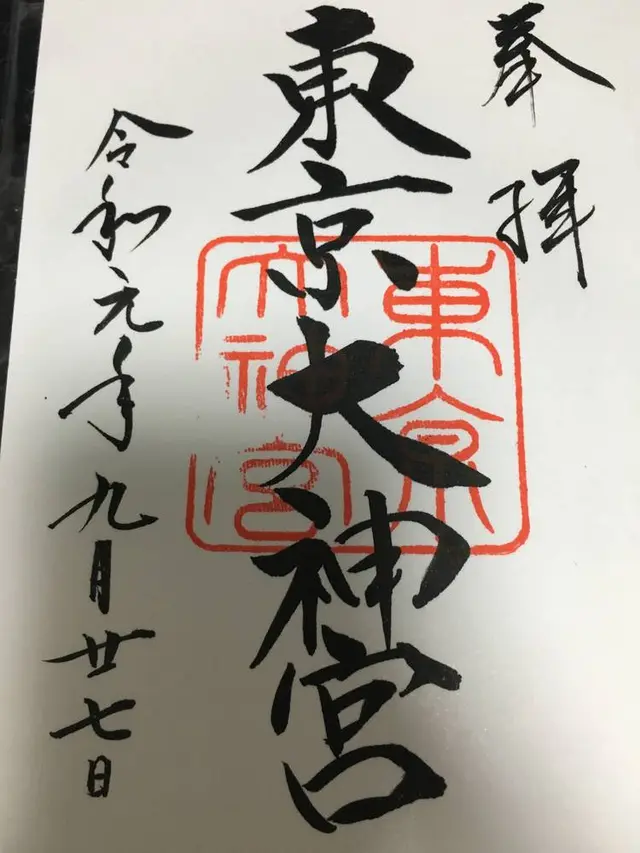 奉拝
東京大神宮
東京
大神宮
令和元年九月廿七日